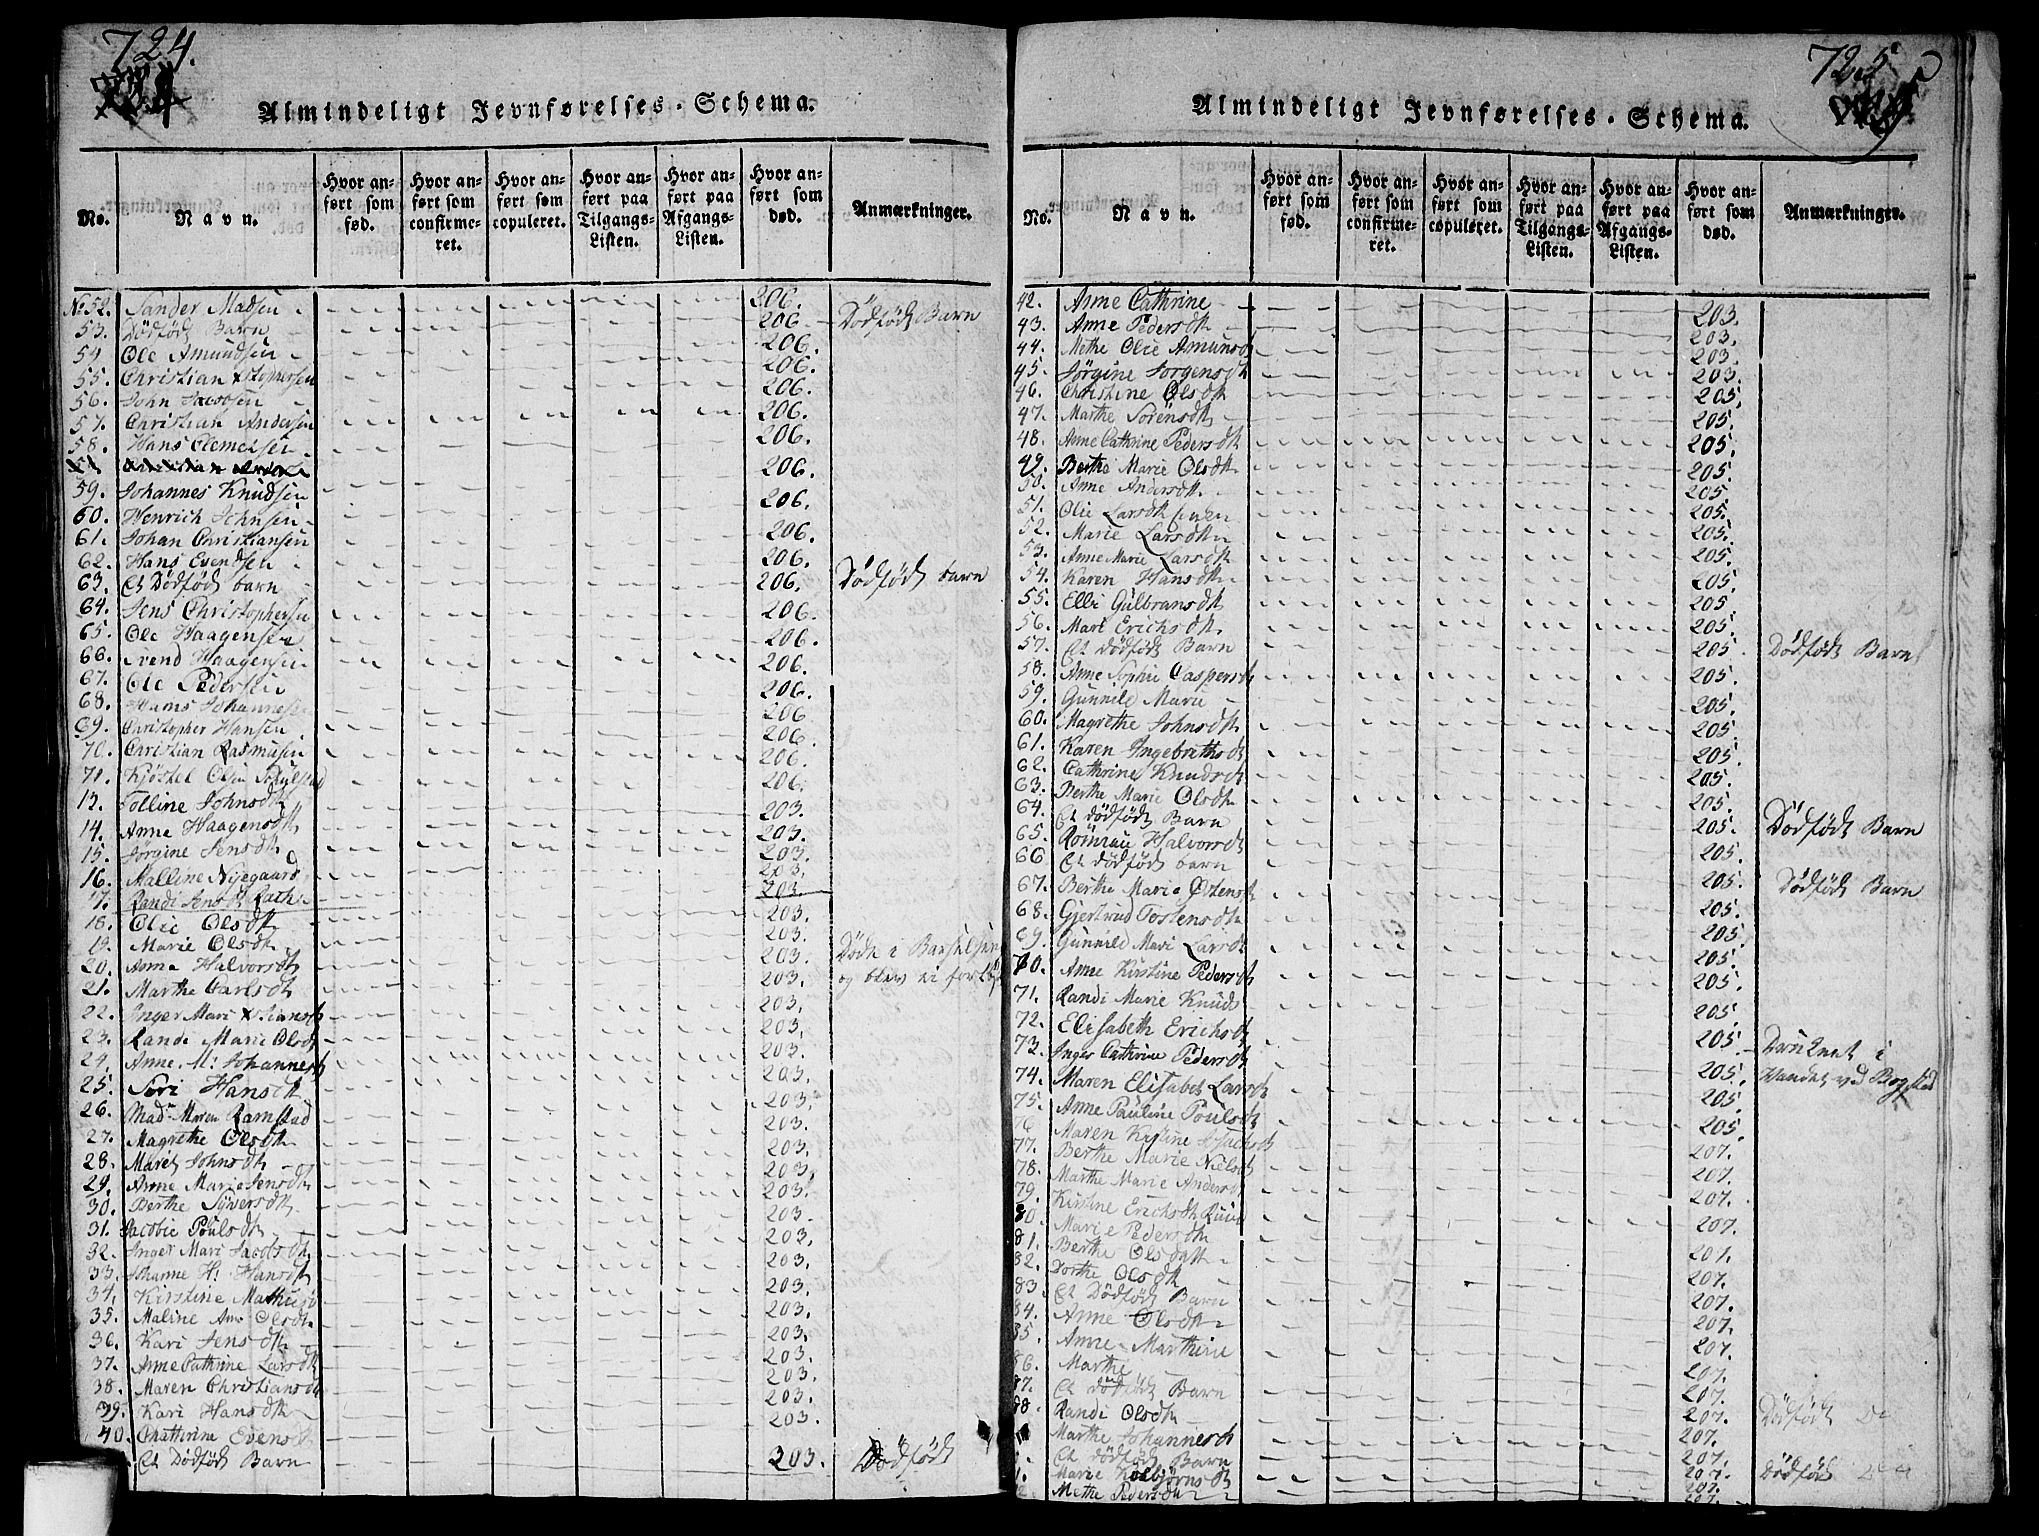 724.
Almindeligt Jevnførelses-Schema.
No.
Navn.
Hvor anført som fød.
Hvor anført som confirmeret.
Hvor anført som copuleret.
Hvor anført paa Tilgangs-Listen.
Hvor anført paa Afgangs-Listen.
Hvor anført som død.
Anmærkninger.
No 52. Sander Madsen 206.
53. Dödfödt Barn 206 Dödfödt Barn
54 Ole Amundsen 206.
55. Christian Xstophersen 206
56. John Jacobsen 206
57. Christian Andersen 206.
58. Hans Clemetsen 206.
59. Johannes Knudsen 206.
60. Henrich Johnsen 206
61. Johan Christiansen 206.
62. Hans Evendsen 206.
63. Et Dödfödt barn 206. Dödfödt barn
64. Jens Christophersen 206
65. Ole Haagensen 206.
66. Svend Haagensen 206.
67. Ole Pedersen 206.
68. Hans Johannesen 206
69. Christopher Hansen 206.
70. Christian Rasmusen 206.
71. Kjöstel Olsen 206.
13. Tolline Johnsdtr 203.
14. Anne Haagensdtr 203.
15. Jörgine Jensdtr 203.
16. Malline Nyegaard 203.
17. Randi Jensdtr 203
18. Olie Olsdtr 203.
19. Marie Olsdtr 203.
20. Anne Halvorsdtr 203. Döde i Barselseng
21. Marthe Carlsdtr 203.
22. Inger Mari 203
23. Randi Marie Olsdtr 203.
24. Anne M: Johannesdtr 203.
25. Siri Hansdtr 203.
26. Mad. Maren Ramstad 203.
27. Magrethe Olsdtr 203.
28. Maret Johnsdtr 203.
29. Anne Marie Jensdtr 203
30. Berthe Syversdtr 203.
31. Jacobie Poulsdtr 203.
32. Inger Mari Jacobsdtr 203.
33. Johanne H: Hansdtr 203.
34. Kirstine 203.
35. Maline Ane Olsdtr 203.
36. Kari Jensdtr 203.
37. Anne Cathrine Larsdtr 203.
38. Maren Christiansdtr 203.
39. Kari Hansdtr 203.
40. Chatherine Evensdtr 203.
Et Dödfödt Barn 203. Dödfödt
725
Almindeligt Jevnførelses-Schema.
No.
Navn.
Hvor anført som fød.
Hvor anført som confirmeret.
Hvor anført som copuleret.
Hvor anført paa Tilgangs-Listen.
Hvor anført paa Afgangs-Listen.
Hvor anført som død.
Anmærkninger.
42. Anne Cathrine 203.
43. Anne Pedersdtr 203.
44. Methe Olie Amunsdtr 203.
45. Jörgine Jorgensdtr 203.
46. Christine Olsdtr 205.
47. Marthe Sorensdtr 205.
48. Anne Cathrine Pedersdtr 205.
49. Berthe Marie Olsdtr 205.
50. Anne Andersdtr 205.
51. Olie Larsdtr 205.
52. Marie Larsdtr 205.
53. Anne Marie Larsdtr 205.
54. Karen Hansdtr 205.
55. Elli Gulbransdtr 205.
56. Mari Erichsdtr 205.
57. Et dödfödt Barn 205 Dödfödt Barn
58. Anne Sophie Caspersdtr 205.
59. Gunnild Marie 205.
60. Magrethe Johnsdtr 205.
61. Karen Ingebrethsdtr 205.
62. Cathrine Knudsdtr 205.
63. Berthe Marie Olsdtr 205.
64. Et dödfödt Barn 205. Dödfödt Barn
65. Halvorsdtr 205.
66. Et dödfödt barn 205. Dödfödt Barn
67. Berthe Marie Östensdtr 205.
68. Gjertrud Tostensdtr 205.
69. Gunnild Mari Larsdtr 205.
70. Anne Kirstine Pedersdtr 205.
71. Randi Marie Knuds 205.
72. Elisabeth Erichsdtr 205.
73. Inger Cathrine Pedersdtr 205. Druknet i
74. Maren Elisabet Larsdtr Vandet ved Bogstad
75. Anne Pauline Poulsdtr 205.
76 Maren Kirstine 205.
77. Berthe Marie Nielsdtr 207.
78. Marthe Marie Andersdtr 207.
79. Kirstine Erichsdtr Ruud 207.
80. Marie Pedersdtr 207.
81. Berthe Olsdatt 207.
82. Dorthe Olsdtr 207.
83 Et Dödfödt Barn 207.
84. Anne Olsdtr 207.
85. Anne Marthine 207.
86. Marthe 207.
87. Et dödfödt Barn 207.
88. Randi Olsdtr 207. Dödfödt
Marthe Johannesdtr 207.
Et dödfödt Barn 207. Dödfödt
Marie Kolbjörnsdtr 207.
Methe Pedersdtr 207.